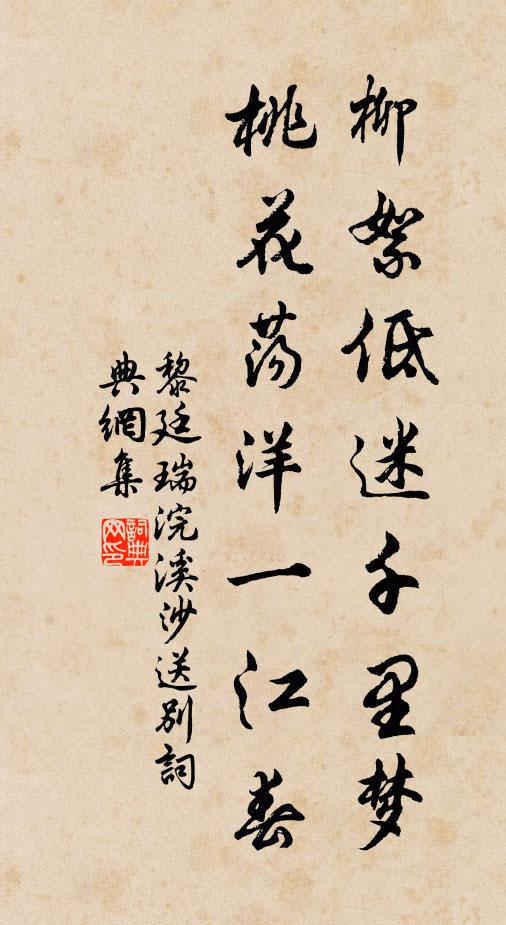 柳絮低迷千里梦
桃花荡洋一江春
黎廷瑞浣溪沙送别詞
典網集
詞典網印